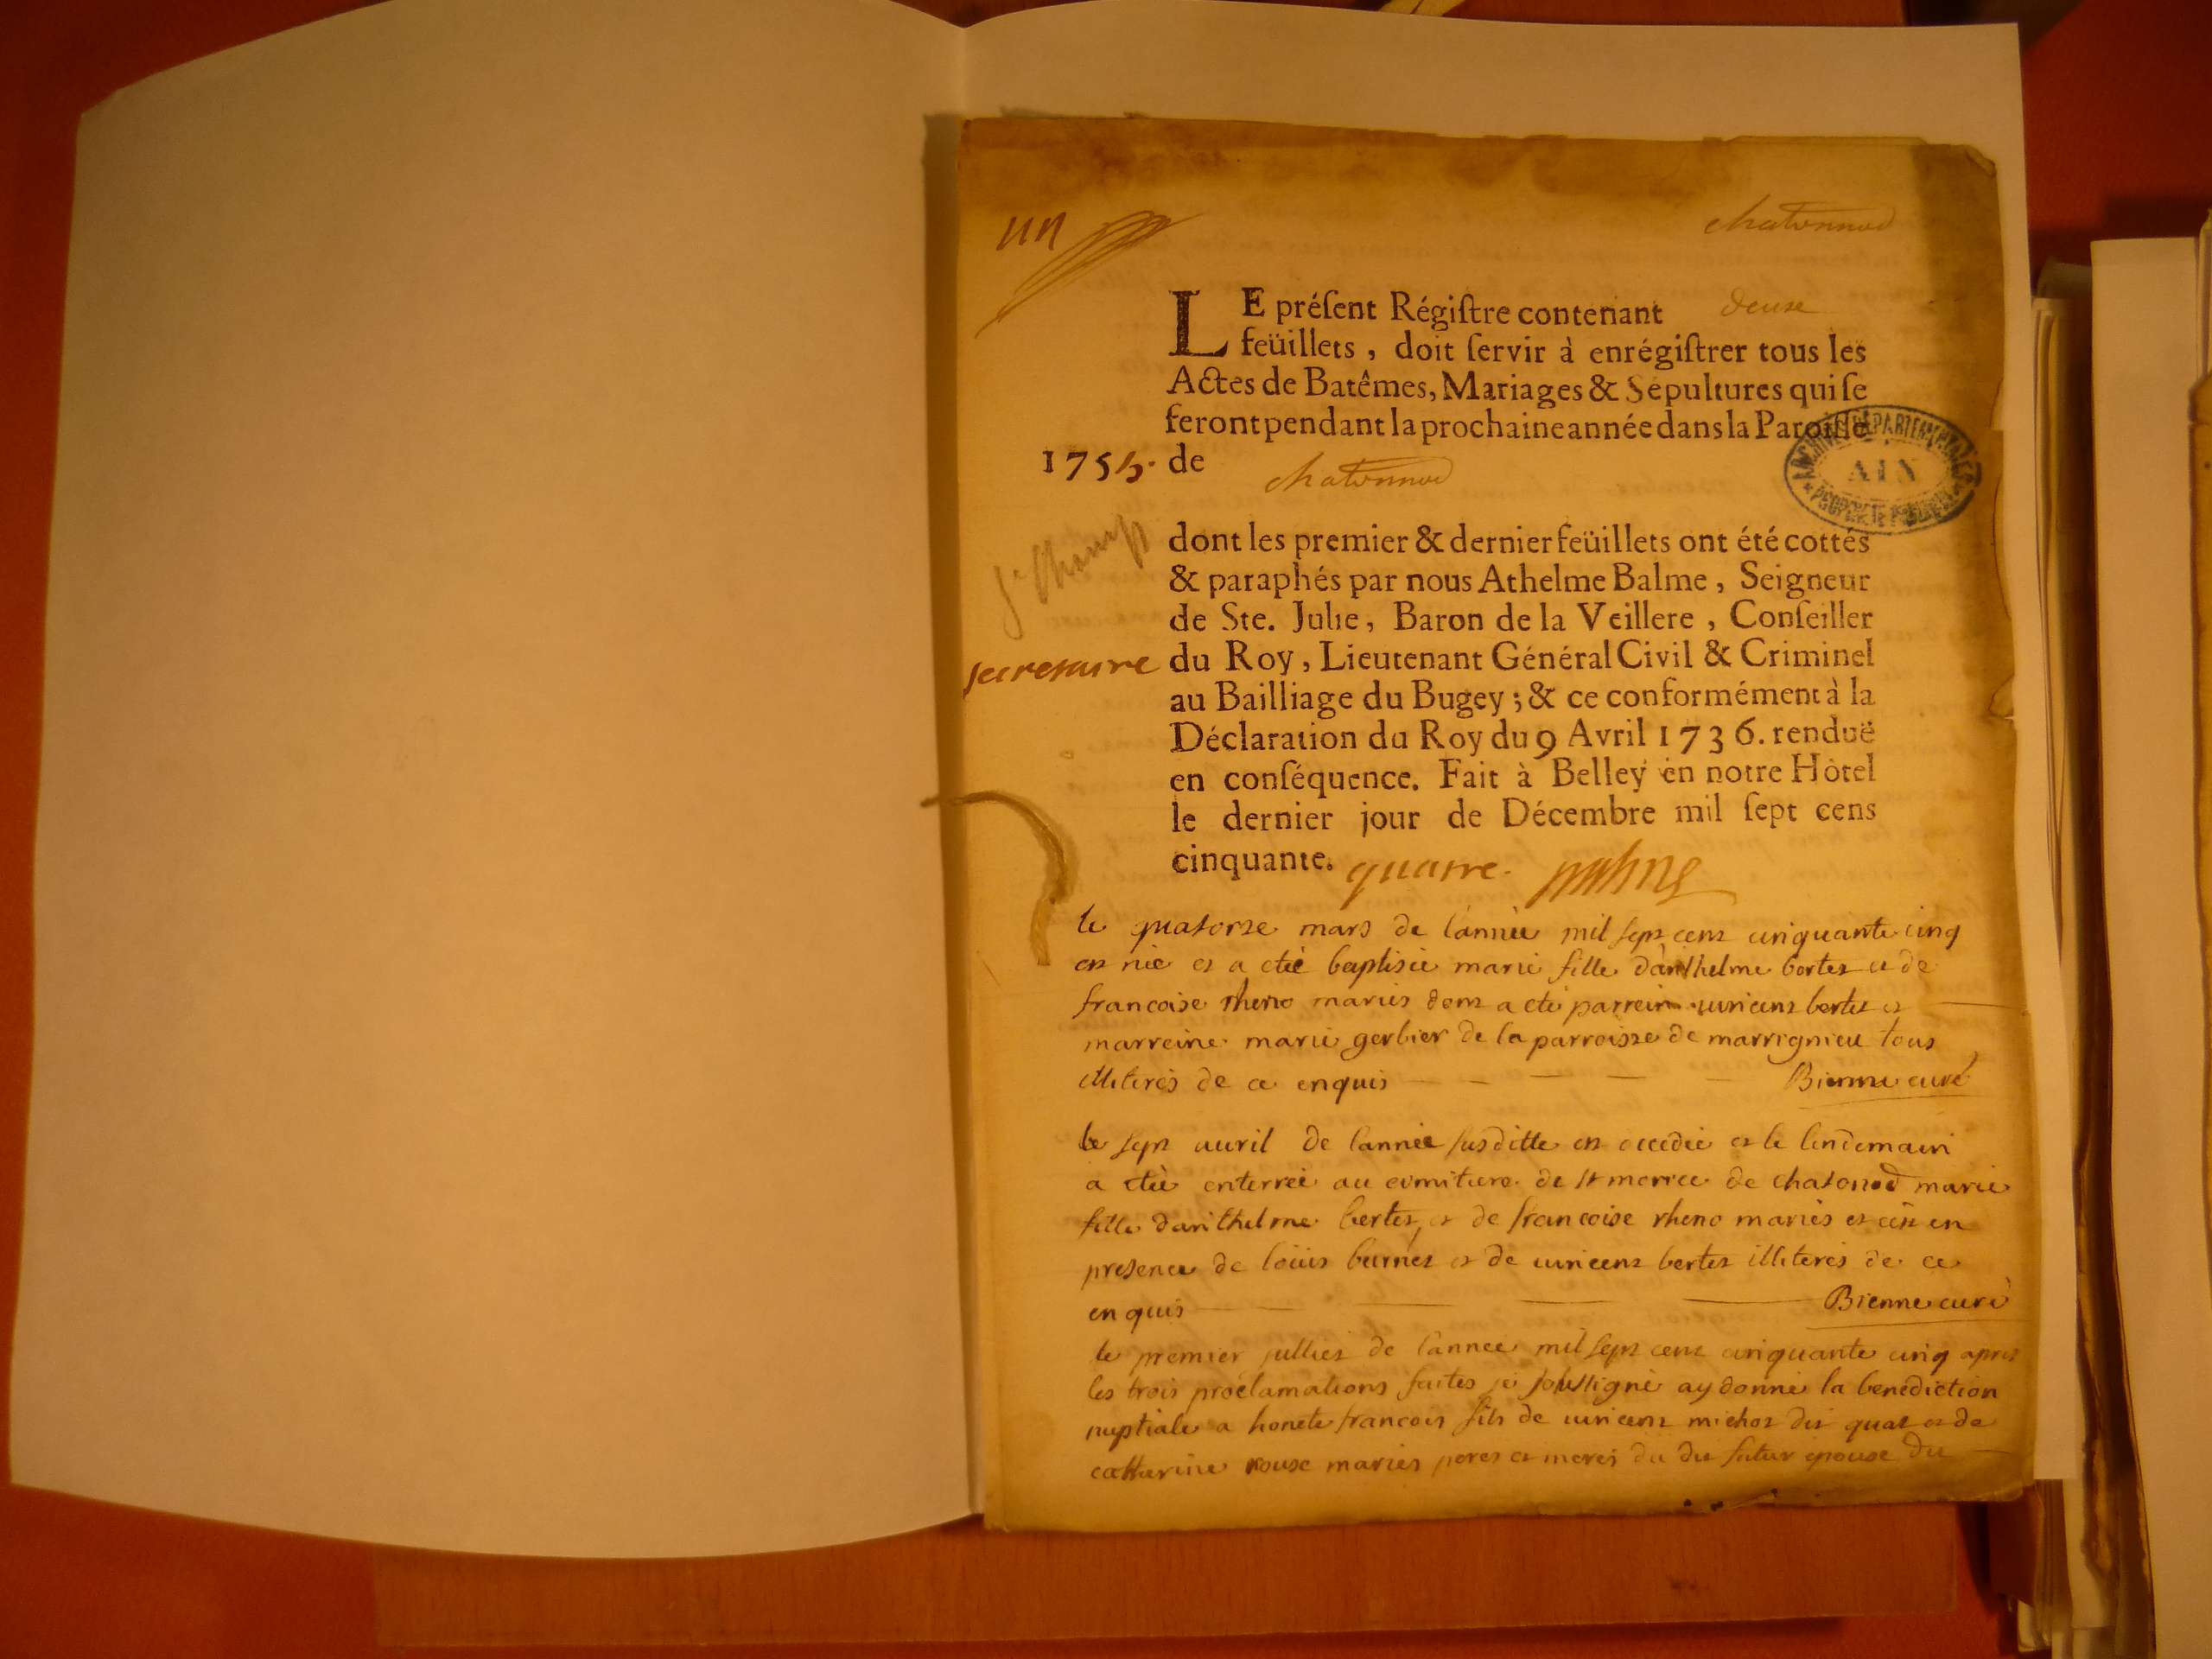 un
chatonnod
LE préſent Régiſtre contenant deuse
feüillets, doit ſervir à enrégiſtrer tous les
Actes de Batêmes, Mariages & Sépultures qui ſe
feront pendant la prochaine année dans la Paroiſſe
1755. de chatonnod
ARCHIVES DÉPARTEMENTALES
AIN
PROPRIETE PUBLIQUE
dont les premier & dernier feüillets ont été cottés
& paraphés par nous Athelme Balme, Seigneur
de Ste. Julie, Baron de la Veillere, Conſeiller
secretaire du Roy, Lieutenant Général Civil & Criminel
au Bailliage du Bugey; & ce conformément à la
Déclaration du Roy du 9 Avril 1736. renduë
en conſéquence. Fait à Belley en notre Hôtel
le dernier jour de Décembre mil ſept cens
cinquante. quatre.
le quatorze mars de l'année mil sept cent cinquante cinq
est née et a étée baptisée marie fille d'anthelme bertet et de
francoise rheno mariés dont a été parrein vincent bertet et
marreine marie gerbier de la parroisse de marrignieu tous
illiterés de ce enquis Bienne curé
le sept avril de l'année susditte est decedée et le lendemain
a étée enterrée au cemitiere de st morice de chatonod marie
fille d'anthelme bertet et de francoise rheno mariés et cest en
presence de loüis burnet et de vincent bertet illiterés de ce
enquis Bienne curé
le premier julliet de l'annee mil sept cent cinquante cinq apres
les trois proclamations faites je soussigné ay donné la benediction
nuptiale a honete francois fils de vincent michot dit quat et de
catherine rouse mariés peres et meres du dit futur epouse du